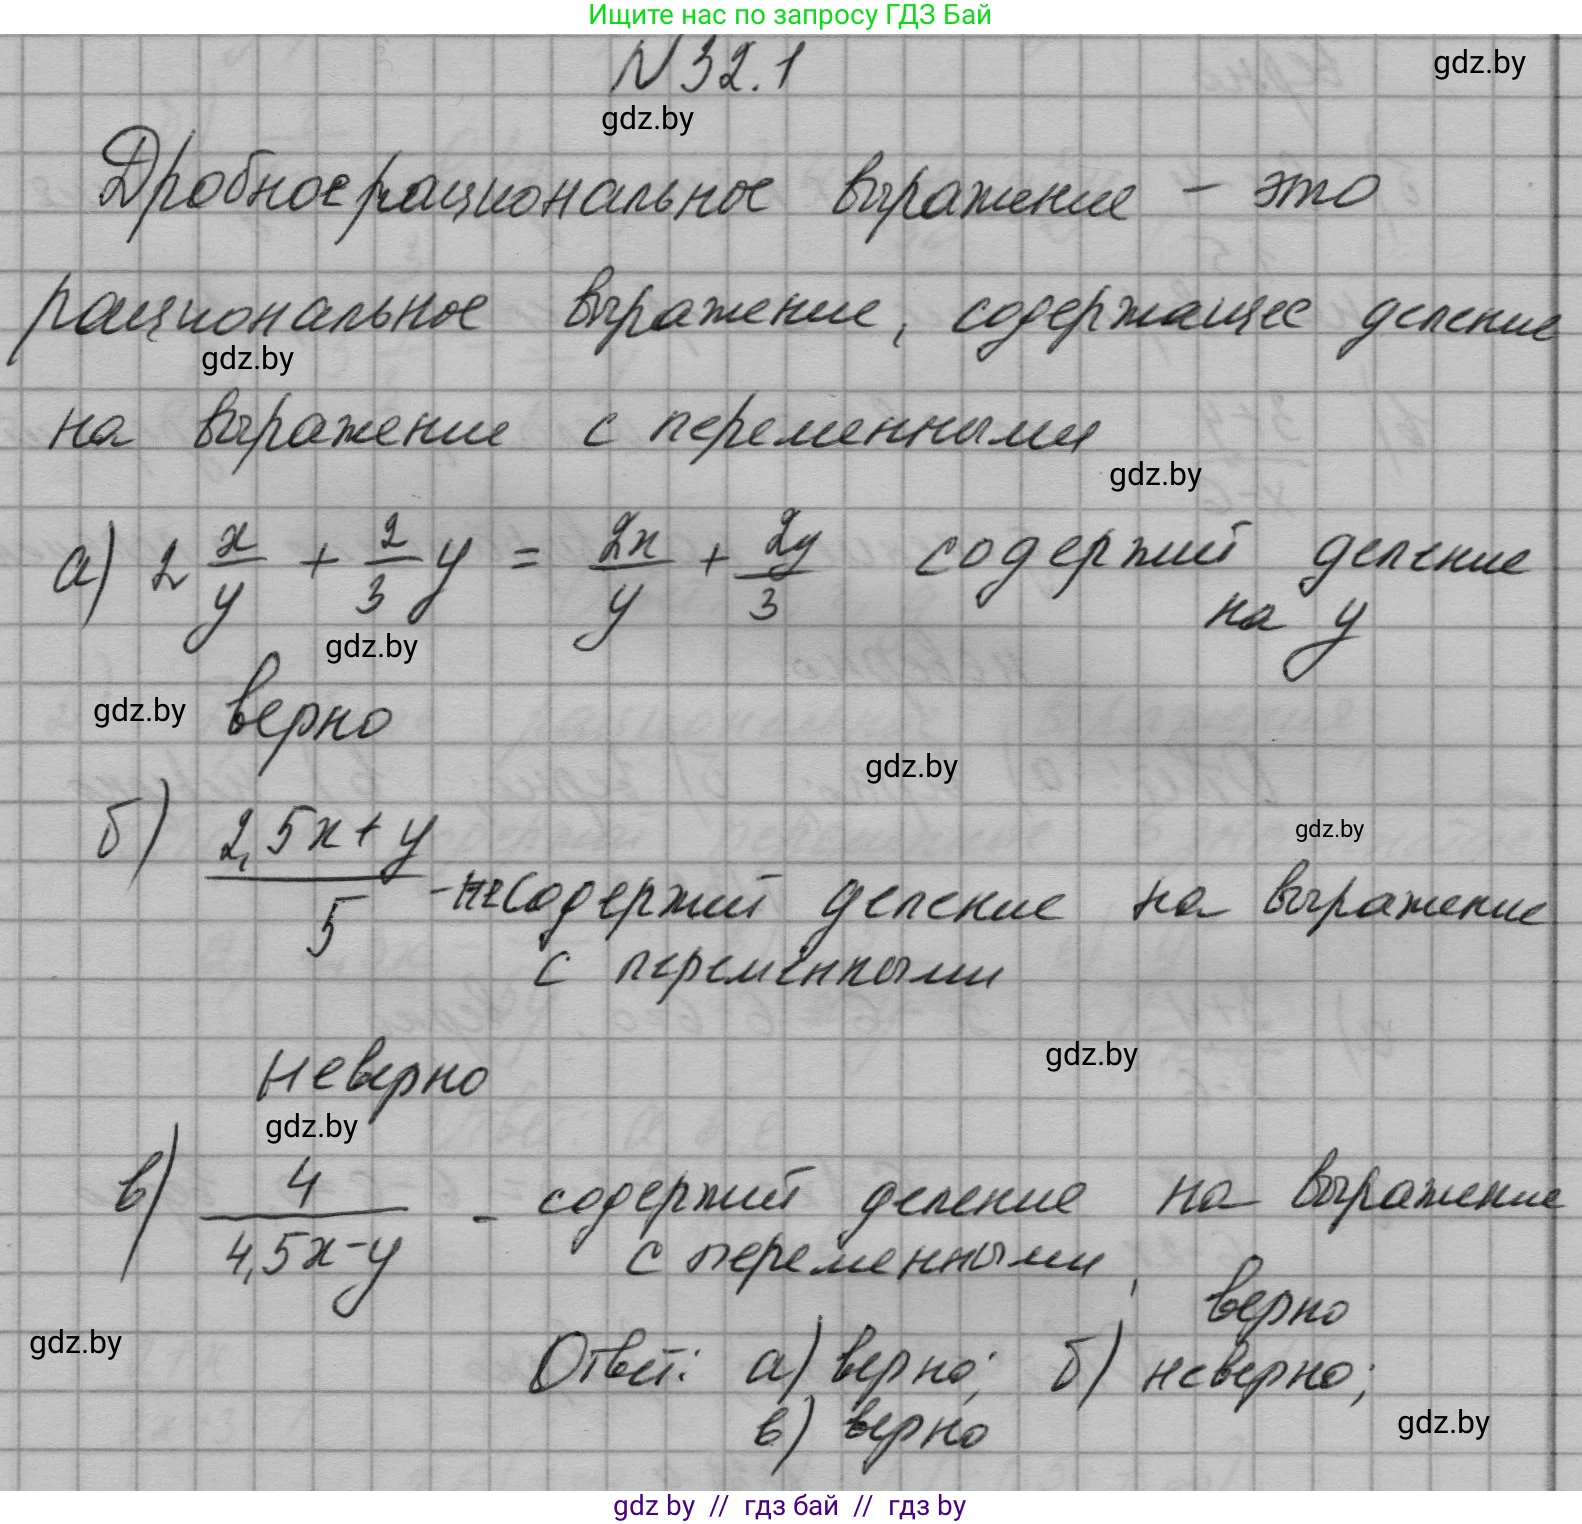 Ищите нас по запросу ГДЗ Бай
N 32.1
gdz.by
gdz.by
Дробное рациональное выражение – это
рациональное выражение, содержащее деление
gdz.by
на выражение с переменными
gdz.by
а) 2 x/y + 2/3 y = 2x/y + 2y/3 содержит деление
на y
gdz.by
gdz.by
верно
gdz.by
gdz.by
б) 2,5x+y/5 - не содержит деление на выражение
с переменными
gdz.by
неверно
gdz.by
в) 4/4,5x-y - содержит деление на выражение
с переменными,
верно
gdz.by
Ответ: а) верно; б) неверно;
в) верно
gdz.by
gdz by // гдз бай // гдз by